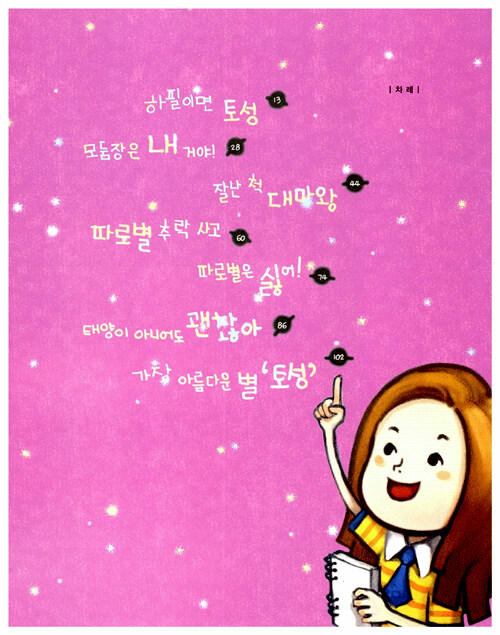 | 차 례 |
하필이면 토성 13
모둠장은 내 거야! 28
잘난 척 대마왕 44
따로별 추락 사고 60
따로별은 싫어! 74
태양이 아니어도 괜찮아 86
가장 아름다운 별 '토성' 102